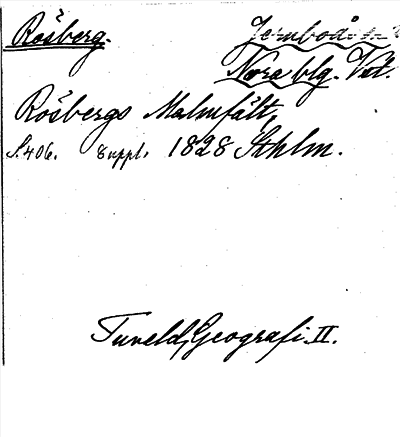 Rösberg. Jernboås sn
Nora blg. Vst.
Rösbergs Malmfält,
S. 406. suppl. 1828 Sthlm.
Tuneld, Geografi. II.